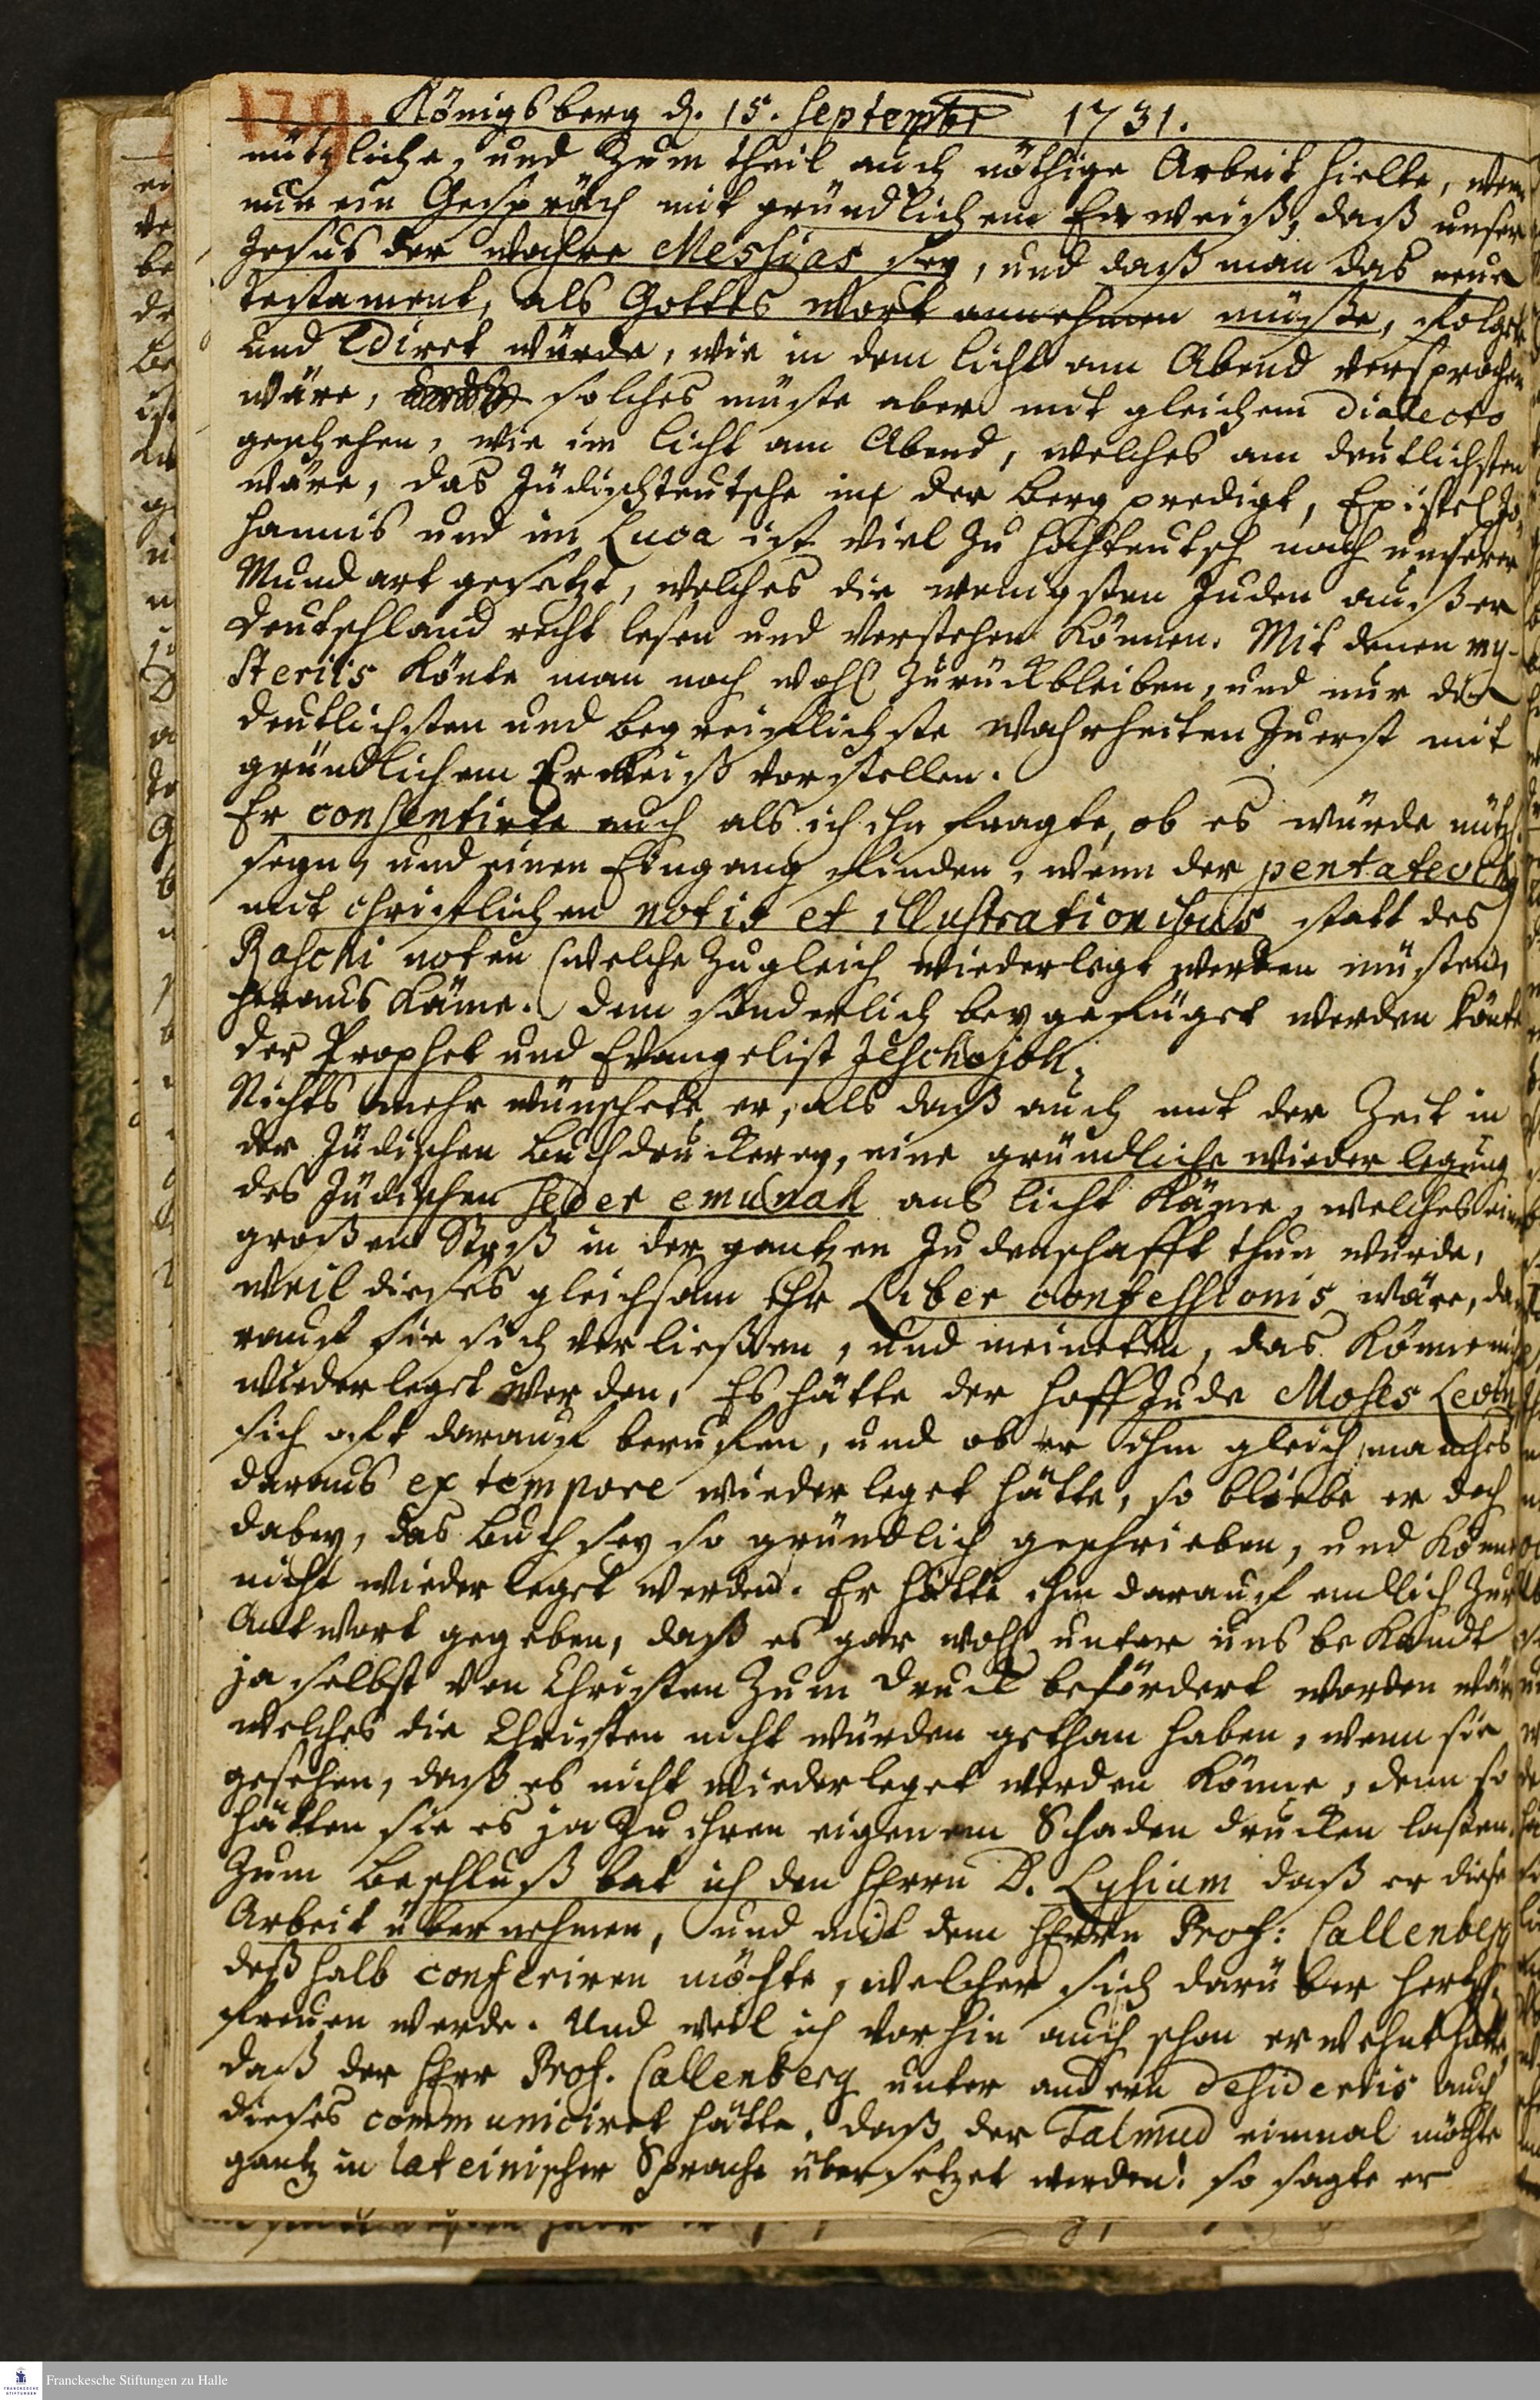 179. Königsberg d. 15. Septembr 1731.
nützliche, und zum theil auch nöthige Arbeit hielte, wenn
nun ein Gespräch mit gründlichem Erweiß, daß unser
Jesus der wahre Messias sey, und daß man das neue
testament, als Gottes Wort annehmen müste, folgete
und Ediret würde, wie in dem licht am Abend versprochen
wäre, solches müste aber mit gleichem dialecto
geschehen, wie im licht am Abend, welches am deutlichsten
wäre, das Jüdischteutsche in der bergpredigt, Epistel Jo,
hannis und im Luca ist viel zu hochteutsch nach unserer
Mundart gesetzt, welches die wenigsten Juden außer
Deutschland recht lesen und verstehen können. Mit denen my-
steriis könte man noch wohl zurückbleiben, und nur die
deutlichsten und begreiflichste Wahrheiten zuerst mit
gründlichem Erweiß vorstellen.
Er consentirte auch als ich ihn fragte, ob es würde nützl.
seyn, und einen Eingang finden, wenn der pentateuch
mit christlichen notis et illustrationibus statt des
Raschi noten (welche zugleich wiederlegt werden müsten)
heraus käme. dem sonderlich beygefüget werden könte
der Prophet und Evangelist Jeschajoh.
Nichts mehr wünschete er, als daß auch mit der Zeit in
der Jüdischen buchdruckerey, eine gründliche wiederlegung
des Jüdischen Seder emunah ans licht käme, welches einen
großen Stoß in der gantzen Judenschafft thun würde,
weil dieses gleichsam ihr Liber confessionis wäre, da
rauf sie sich verließen, und meineten, das könne nicht
wiederleget werden. Es hätte der hoffJude Moses Levin
sich oft darauf berufen, und ob er ihm gleich manches
daraus ex tempore wiederleget hätte, so bliebe er doch
dabey, das buch sey so gründlich geschrieben, und könne
nicht wiederleget werden. Er hätte ihm darauf endlich zur
Antwort gegeben, daß es gar wohl unter uns bekandt
ja selbst von Christen zum druck befördert worden wäre
welches die Christen nicht würden gethan haben, wenn sie
gesehen, daß es nicht wiederleget werden könne, denn so
hätten sie es ja zu ihren eigenem Schaden drucken laßen.
Zum beschluß bat ich den Herrn D. Lysium daß er diese
Arbeit übernehmen, und mit dem Herrn Prof: Callenberg
deßhalb conferiren möchte, welcher sich darüber hertzl.
freuen werde. Und weil ich vorhin auch schon erwehnt hatte,
daß der Herr Prof. Callenberg unter andern desideriis auch
dieses communiciret hätte, daß der Talmud einmal möchte
gantz in lateinischer Sprache übersetzet werden! so sagte er
Franckesche Stiftungen zu Halle